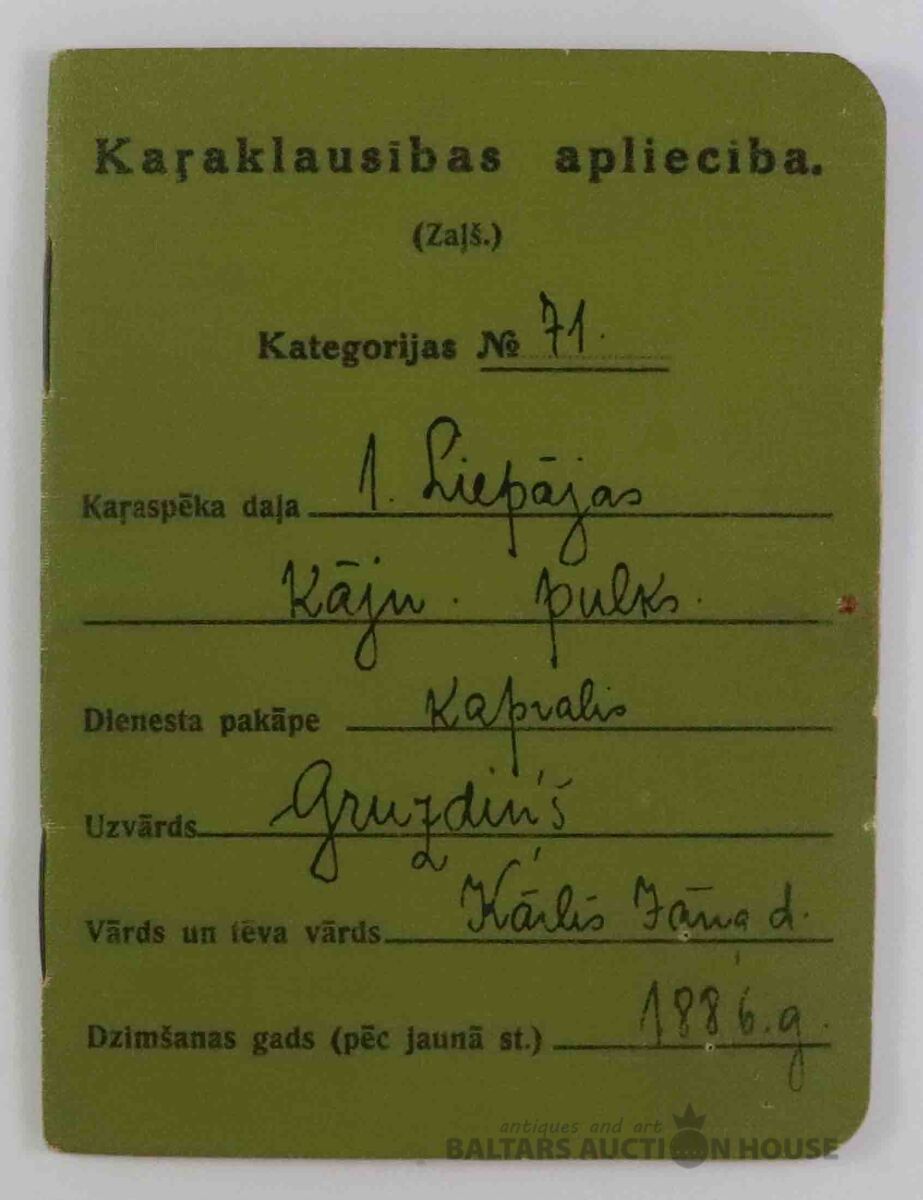 Kaŗaklausības apliecība.
(Zaļš.)
Kategorijas № 71.
Kaŗaspēka daļa 1. Liepājas
Kāju pulks.
Dienesta pakāpe Kapralis
Uzvārds Gruzdiņš
Vārds un tēva vārds Kārlis Jāņa d.
Dzimšanas gads (pēc jaunā st.) 1886.g.
antiques and art
BALTARS AUCTION HOUSE